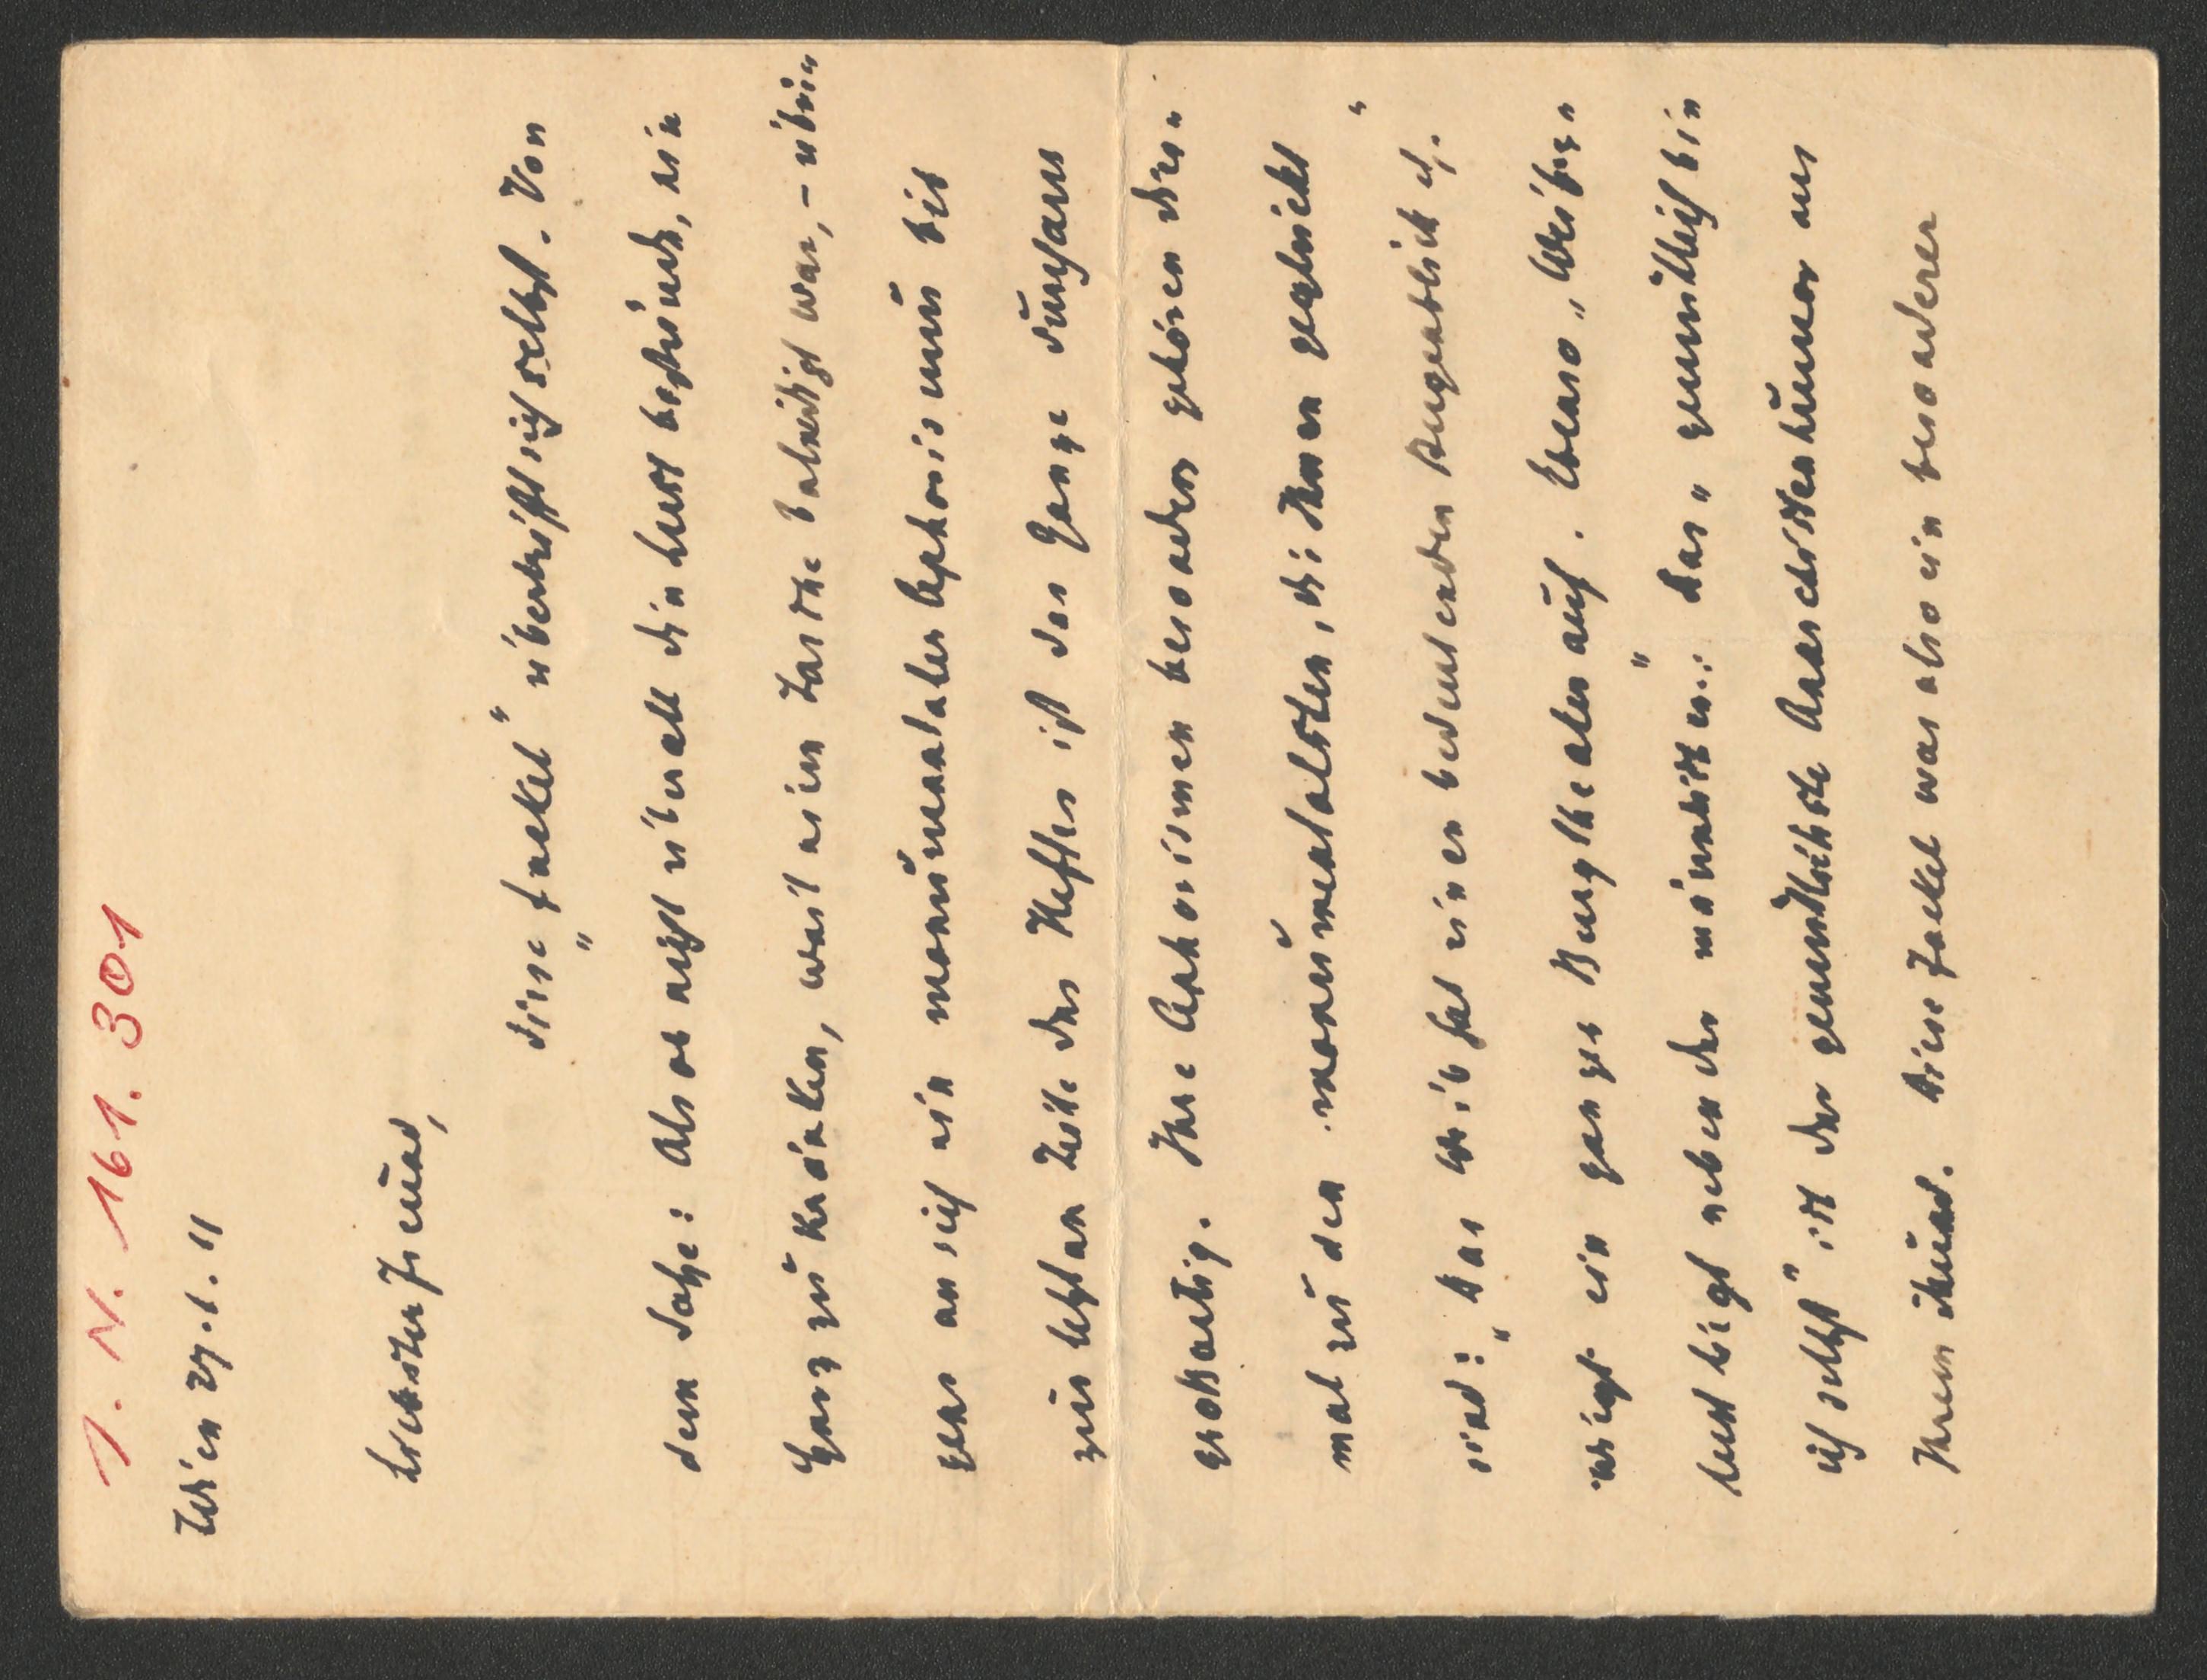 I. N. 161.301
Wien 27.6.11
Liebster Freund,
diese „Fackel“ übertrifft sich selbst. Von
dem Satze: Als ob nicht überall die Lust bestünde, ein
Herz zu kränken, weil eine Taste beleidigt war, – übri
gens an sich ein monumentaler Aphorismus bis
zur letzten Zeile des Heftes ist das Ganze durchaus
großartig. Ihre Aphorismen besonders gehören dies=
mal zu den monumentalsten, die Ihnen geglückt
sind: „Das Weib hat einen bedeutenden Augenblick etc.“
wiegt ein ganzes Burgtheater auf. Ebenso „Weiber
lust liegt neben der männlichen..“ Das „gemütlich bin
ich selbst“ ist der gemütlichste Aristen Humor aus
Ihrem Mund. Diese Fackel war also ein besonderer